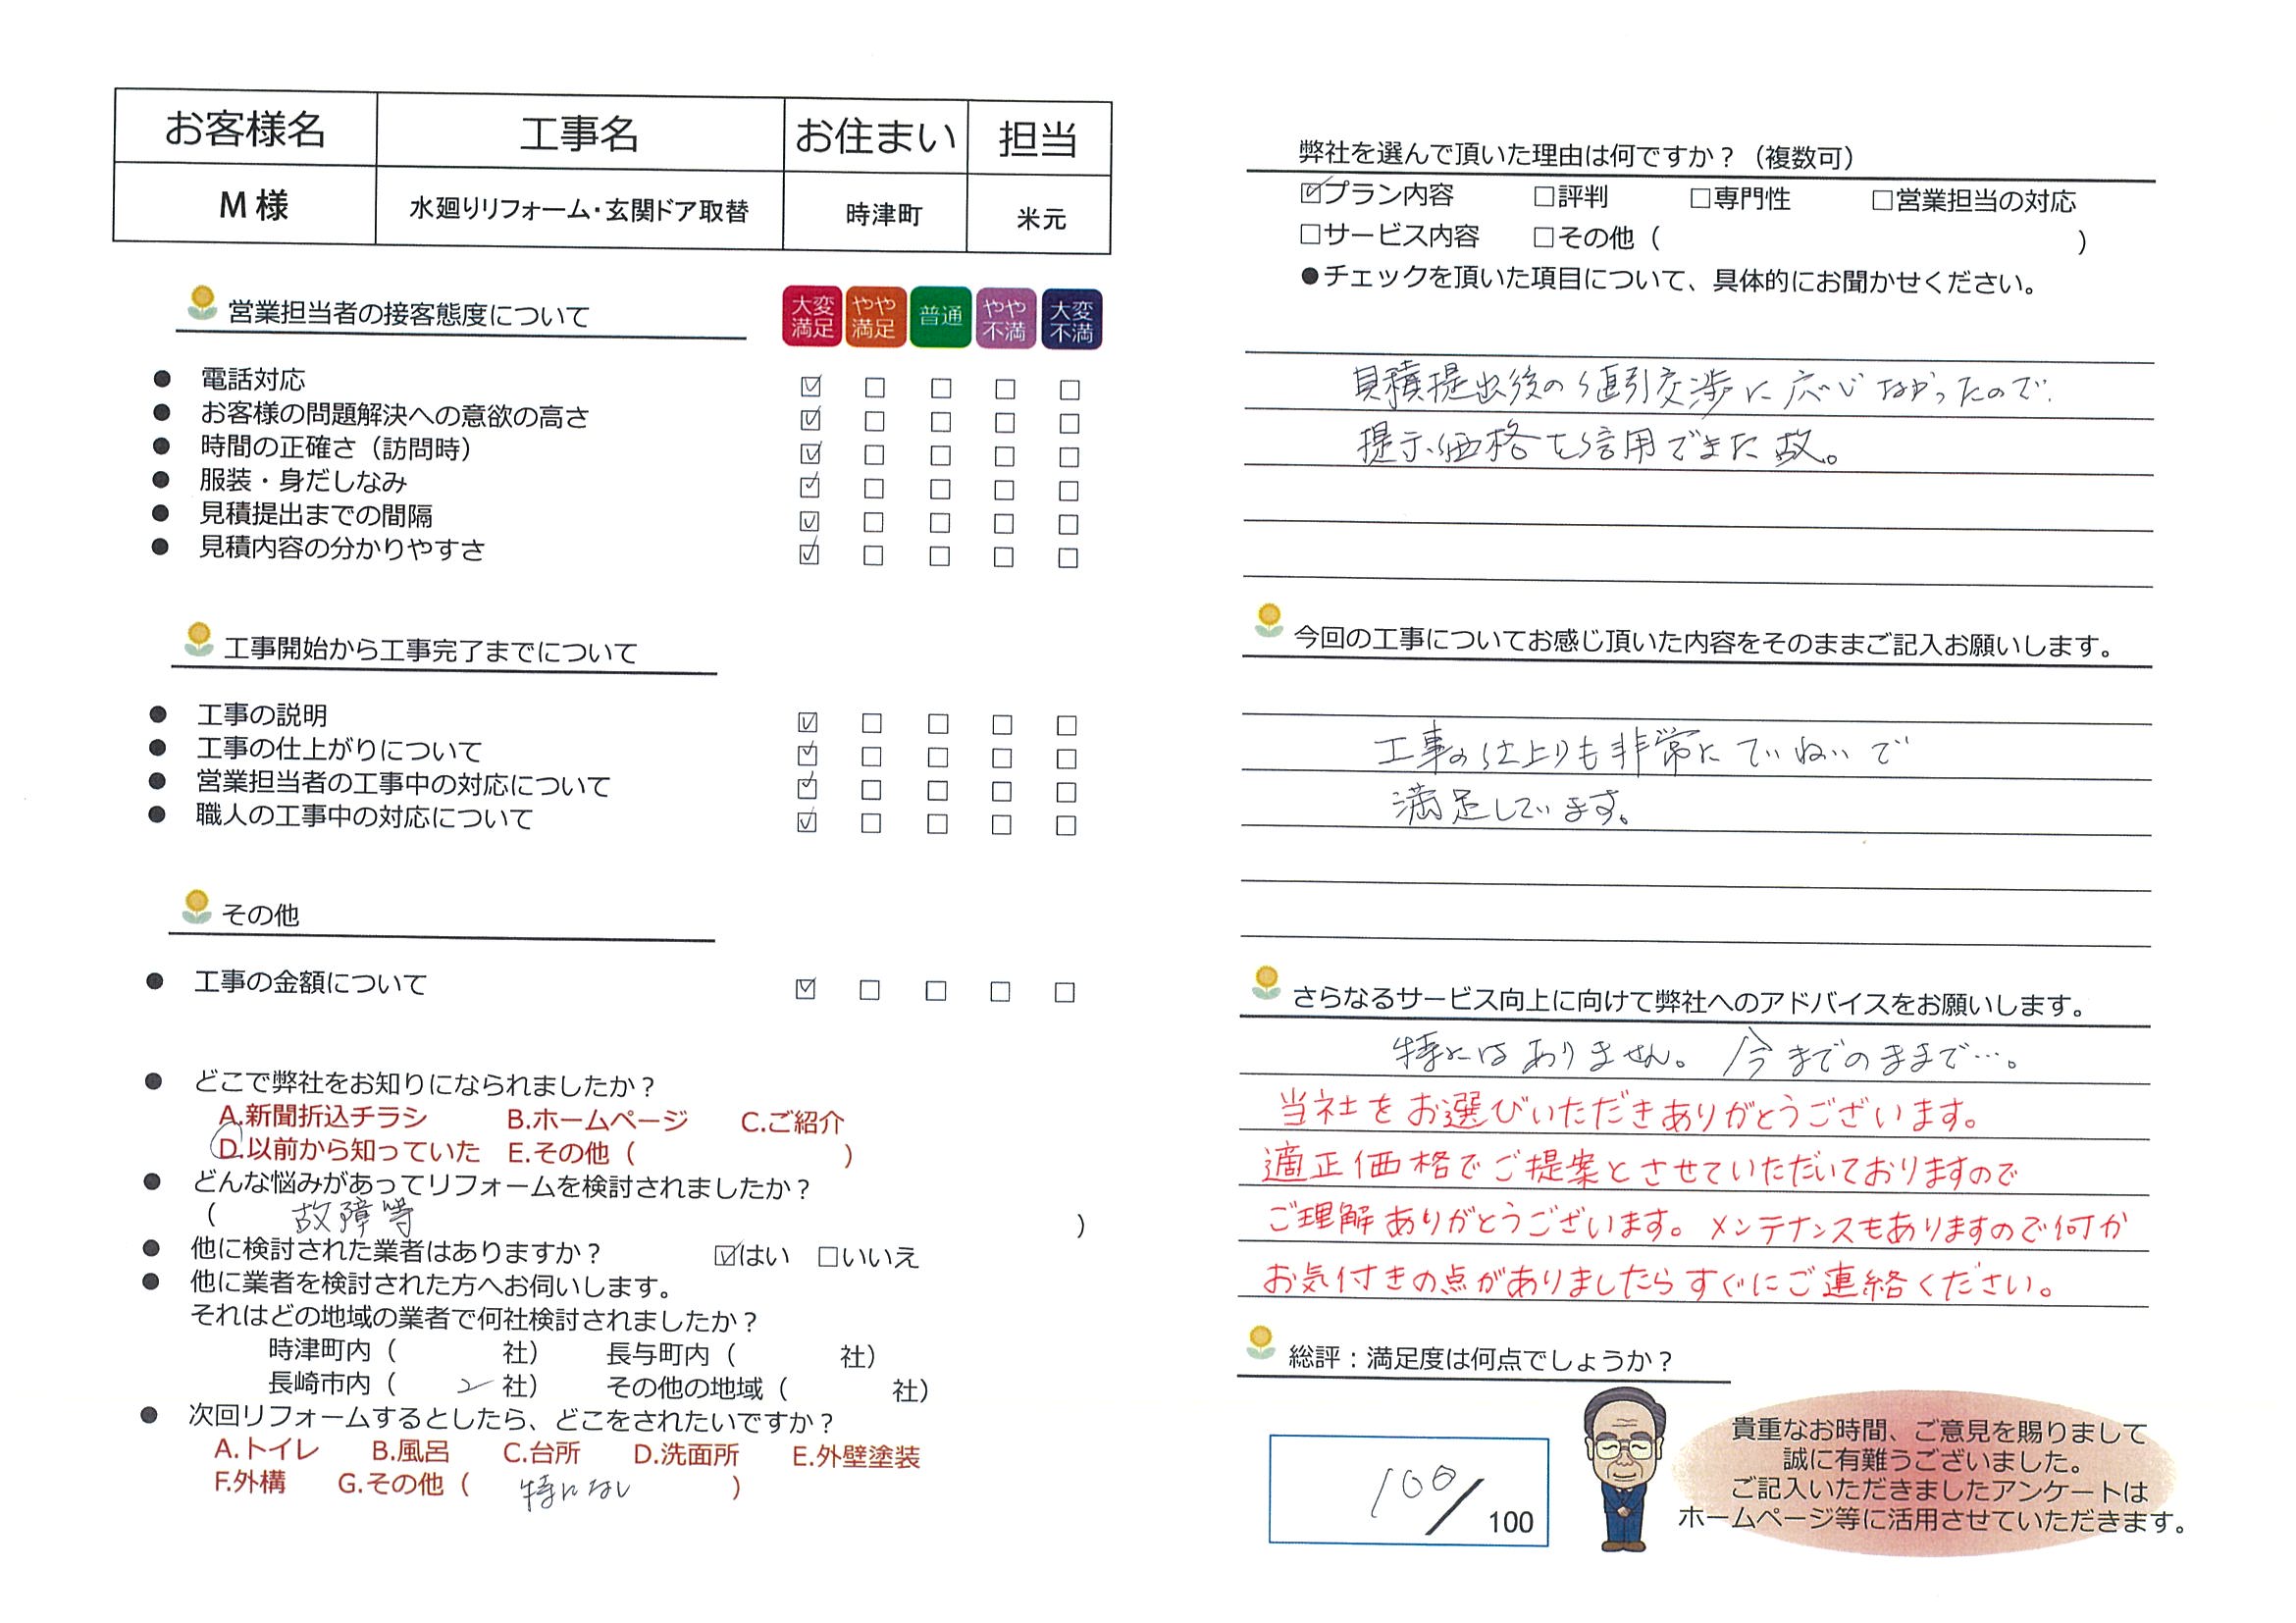 お客様名 工事名 お住まい 担当
M様 水廻りリフォーム・玄関ドア取替 時津町 米元
営業担当者の接客態度について
大変満足 やや満足 普通 やや不満 大変不満
● 電話対応 ☑ □ □ □ □
● お客様の問題解決への意欲の高さ ☑ □ □ □ □
● 時間の正確さ（訪問時） ☑ □ □ □ □
● 服装・身だしなみ ☑ □ □ □ □
● 見積提出までの間隔 ☑ □ □ □ □
● 見積内容の分かりやすさ ☑ □ □ □ □
工事開始から工事完了までについて
● 工事の説明 ☑ □ □ □ □
● 工事の仕上がりについて ☑ □ □ □ □
● 営業担当者の工事中の対応について ☑ □ □ □ □
● 職人の工事中の対応について ☑ □ □ □ □
その他
● 工事の金額について ☑ □ □ □ □
● どこで弊社をお知りになられましたか？
A.新聞折込チラシ B.ホームページ C.ご紹介
D.以前から知っていた E.その他（ ）
● どんな悩みがあってリフォームを検討されましたか？
（ 故障等 ）
● 他に検討された業者はありますか？ ☑はい □いいえ
● 他に業者を検討された方へお伺いします。
それはどの地域の業者で何社検討されましたか？
時津町内（ 社） 長与町内（ 社）
長崎市内（ 2 社） その他の地域（ 社）
● 次回リフォームするとしたら、どこをされたいですか？
A.トイレ B.風呂 C.台所 D.洗面所 E.外壁塗装
F.外構 G.その他（ 特になし ）
弊社を選んで頂いた理由は何ですか？（複数可）
☑プラン内容 □評判 □専門性 □営業担当の対応
□サービス内容 □その他（ ）
●チェックを頂いた項目について、具体的にお聞かせください。
見積提出後の値引交渉に応じなかったので.
提示価格を信用できた故。
今回の工事についてお感じ頂いた内容をそのままご記入お願いします。
工事の仕上りも非常にていねいで
満足しています。
さらなるサービス向上に向けて弊社へのアドバイスをお願いします。
特にはありません。今までのままで…。
当社をお選びいただきありがとうございます。
適正価格でご提案とさせていただいておりますので
ご理解ありがとうございます。メンテナンスもありますので何か
お気付きの点がありましたらすぐにご連絡ください。
総評：満足度は何点でしょうか？
100/100
貴重なお時間、ご意見を賜りまして
誠に有難うございました。
ご記入いただきましたアンケートは
ホームページ等に活用させていただきます。